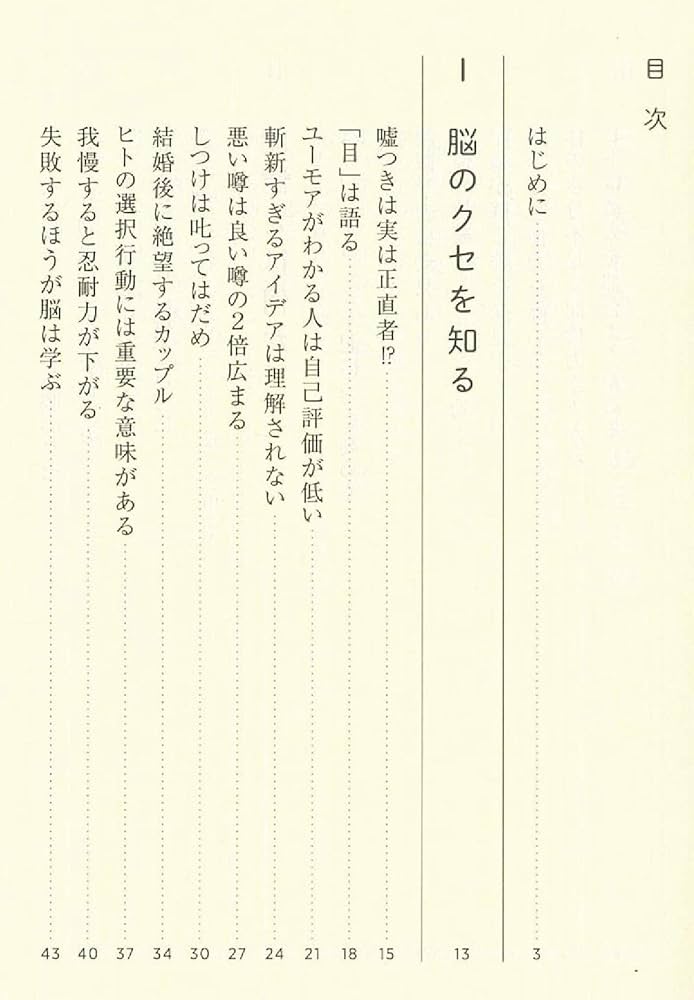 目次
はじめに 3
I 脳のクセを知る 13
嘘つきは実は正直者!? 15
「目」は語る 18
ユーモアがわかる人は自己評価が低い 21
斬新すぎるアイデアは理解されない 24
悪い噂は良い噂の2倍広まる 27
しつけは叱ってはだめ 30
結婚後に絶望するカップル 34
ヒトの選択行動には重要な意味がある 37
我慢すると忍耐力が下がる 40
失敗するほうが脳は学ぶ 43